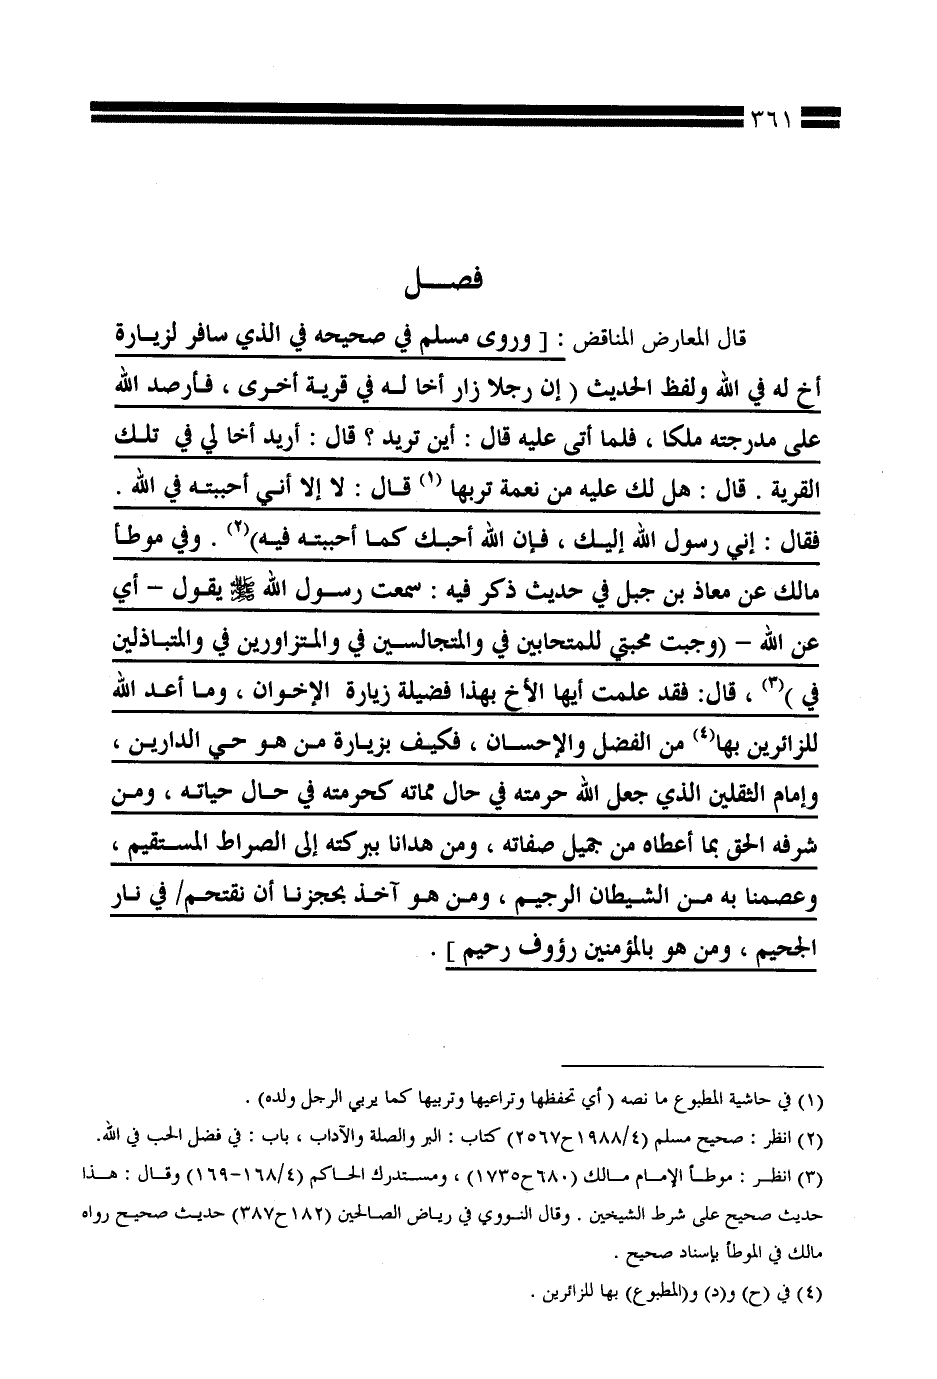 ٣٦١
فصـــل
قال المعارض المناقض : [ وروى مسلم في صحيحه في الذي سافر لزيـارة
أخ له في الله ولفظ الحديث ( إن رجلا زار أخا لـه في قرية أخرى ، فـأرصد الله
على مدرجته ملكا ، فلما أتى عليه قال : أين تريد ؟ قال : أريد أخا لي في تلـك
القرية . قال : هل لك عليه من نعمة تربها (١) قـال : لا إلا أنـي أحببتـه في الله .
فقال : إني رسول الله إليـك ، فـإن الله أحبـك كمـا أحببتـه فيـه)(٢) . وفي موطـأ
مالك عن معاذ بن جبل في حديث ذكر فيه : سمعت رسـول الله ﷺ يقول – أي
عن الله – (وجبت محبتي للمتحابين في والمتجالسـين في والمـتزاورين في والمتبـاذلين
في )(٣) ، قال: فقد علمت أيها الأخ بهذا فضيلة زيارة الإخـوان ، ومـا أعـد الله
للزائرين بها(٤) من الفضل والإحسـان ، فكيـف بزيـارة مـن هـو حـي الداريـن ،
وإمام الثقلين الذي جعل الله حرمته في حال مماته كحرمته في حـال حياتـه ، ومـن
شرفه الحق بما أعطاه من جميل صفاته ، ومن هدانا ببركته إلى الصراط المسـتقيم ،
وعصمنا به مـن الشـيطان الرجيـم ، ومـن هـو آخـذ بحجزنـا أن نقتحـم/ في نـار
الجحيم ، ومن هو بالمؤمنين رؤوف رحيم ] .
(١) في حاشية المطبوع ما نصه ( أي تحفظها وتراعيها وتربيها كما يربي الرجل ولده) .
(٢) انظر : صحيح مسلم (١٩٨٨/٤ح٢٥٦٧) كتاب : البر والصلة والآداب ، باب : في فضل الحب في الله.
(٣) انظـر : موطـأ الإمـام مـالك (٦٨٠ح١٧٣٥) ، ومسـتدرك الحـاكم (١٦٨/٤-١٦٩) وقـال : هـذا
حديث صحيح على شرط الشيخين . وقال النـووي في ريـاض الصـالحين (١٨٢ح٣٨٧) حديـث صحيـح رواه
مالك في الموطأ بإسناد صحيح .
(٤) في (ح) و(د) و(المطبوع) بها للزائرين .